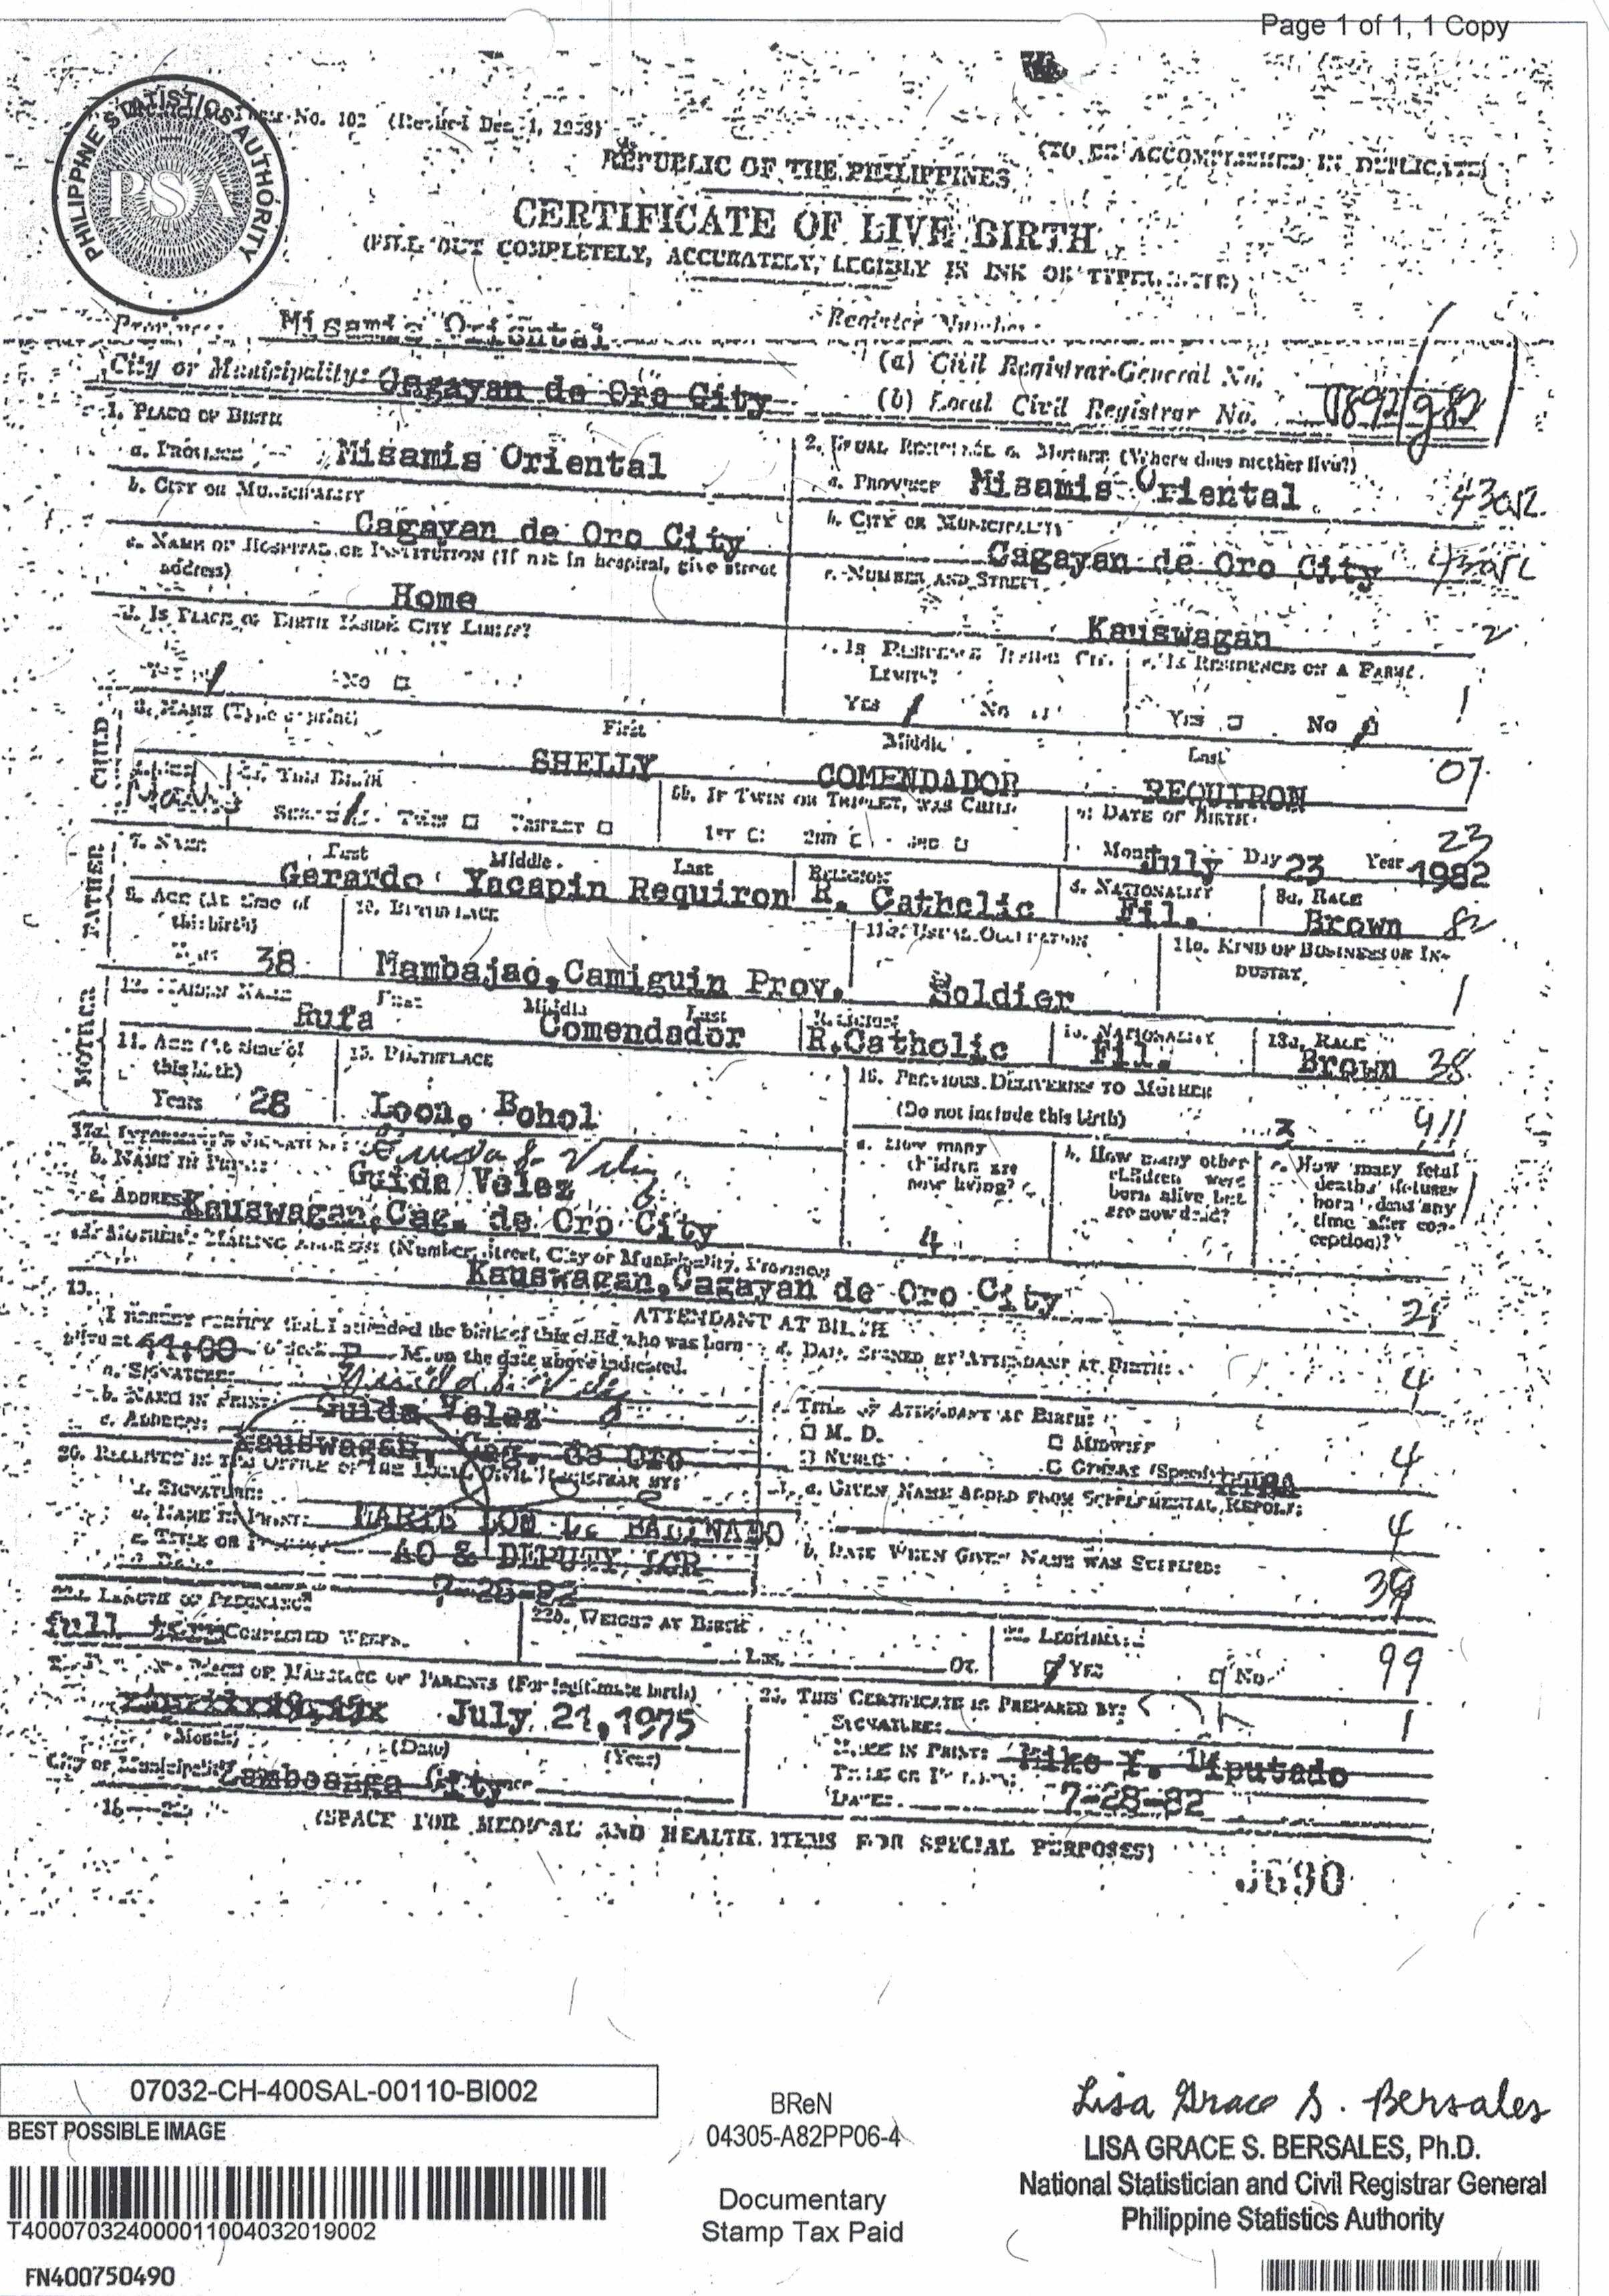 Page 1 of 1, 1 Copy
PHILIPPINE STATISTICS AUTHORITY
PSA
No. 102 (Revised Dec. 1, 1958)
(TO BE ACCOMPLISHED IN DUPLICATE)
REPUBLIC OF THE PHILIPPINES
CERTIFICATE OF LIVE BIRTH
(FILL OUT COMPLETELY, ACCURATELY, LEGIBLY IN INK OR TYPEWRITE)
Province: Misamis Oriental
Register Number:
City or Municipality: Cagayan de Oro City
(a) Civil Registrar-General No.
(b) Local Civil Registrar No.
1. PLACE OF BIRTH
2. USUAL RESIDENCE OF MOTHER (Where does mother live?)
a. PROVINCE Misamis Oriental
a. PROVINCE Misamis Oriental
b. CITY OR MUNICIPALITY Cagayan de Oro City
b. CITY OR MUNICIPALITY Cagayan de Oro City
c. NAME OF HOSPITAL OR INSTITUTION (If not in hospital, give street address)
Home
c. NUMBER AND STREET
Kauswagan 2
d. IS PLACE OF BIRTH INSIDE CITY LIMITS?
No
d. IS RESIDENCE INSIDE CITY LIMITS?
Yes No
e. IS RESIDENCE ON A FARM?
Yes No
CHILD
3. NAME (Type or print) First Middle Last
SHELLY COMENDADOR REQUIRON 07
5a. THIS BIRTH
SINGLE TWIN TRIPLET
5b. IF TWIN OR TRIPLET, WAS CHILD
1ST 2ND 3RD
6. DATE OF BIRTH
Month July Day 23 Year 1982
23
FATHER
7. NAME First Middle Last
Gerardo Yacapin Requiron
RELIGION R. Catholic
8. NATIONALITY Fil.
8a. RACE Brown 82
9. AGE (At time of this birth)
38
10. BIRTHPLACE
Mambajao, Camiguin Prov.
11a. USUAL OCCUPATION
Soldier
11b. KIND OF BUSINESS OR INDUSTRY
MOTHER
12. MAIDEN NAME First Middle Last
Rufa Comendador
RELIGION R.Catholic
13. NATIONALITY Fil.
13a. RACE Brown 38
14. AGE (At time of this birth)
Years 28
15. BIRTHPLACE
Loon, Bohol
16. PREVIOUS DELIVERIES TO MOTHER
(Do not include this birth)
x
a. How many children are now living?
4
b. How many other children were born alive but are now dead?
c. How many fetal deaths (fetuses born dead any time after conception)?
17a. INFORMANT'S SIGNATURE:
b. NAME IN PRINT: Guida Velez
c. ADDRESS Kauswagan, Cag. de Oro City
18. MOTHER'S MAILING ADDRESS (Number, Street, City or Municipality, Province)
Kauswagan, Cagayan de Oro City
19. ATTENDANT AT BIRTH
I HEREBY CERTIFY that I attended the birth of this child who was born alive at o'clock P M. on the date above indicated.
a. SIGNATURE:
b. NAME IN PRINT: Guida Velez
c. ADDRESS: Kauswagan, Cag. de Oro
d. DATE SIGNED BY ATTENDANT AT BIRTH:
4
e. TITLE OF ATTENDANT AT BIRTH:
M. D. MIDWIFE
NURSE OTHERS (Specify)
4
20. RECEIVED IN THE OFFICE OF THE LOCAL CIVIL REGISTRAR BY:
a. SIGNATURE:
b. NAME IN PRINT:
c. TITLE OR POSITION AO & DEPUTY, LCR
d. DATE: 7-28-82
21. a. GIVEN NAME ADDED FROM SUPPLEMENTAL REPORT:
4
b. DATE WHEN GIVEN NAME WAS SUPPLIED:
22a. LENGTH OF PREGNANCY
full term COMPLETED WEEKS.
22b. WEIGHT AT BIRTH
Lbs. Oz.
LEGITIMATE
YES NO
99
DATE AND PLACE OF MARRIAGE OF PARENTS (For legitimate birth)
July 21, 1975
(Month) (Date) (Year)
City or Municipality Zamboanga City
25. THIS CERTIFICATE IS PREPARED BY:
SIGNATURE:
NAME IN PRINT: Mike Y. Diputado
TITLE OR POSITION:
DATE: 7-28-82
(SPACE FOR MEDICAL AND HEALTH ITEMS FOR SPECIAL PURPOSES)
07032-CH-400SAL-00110-BI002
BEST POSSIBLE IMAGE
T400070324000011004032019002
FN400750490
BReN
04305-A82PP06-4
Documentary
Stamp Tax Paid
Lisa Grace S. Bersales
LISA GRACE S. BERSALES, Ph.D.
National Statistician and Civil Registrar General
Philippine Statistics Authority